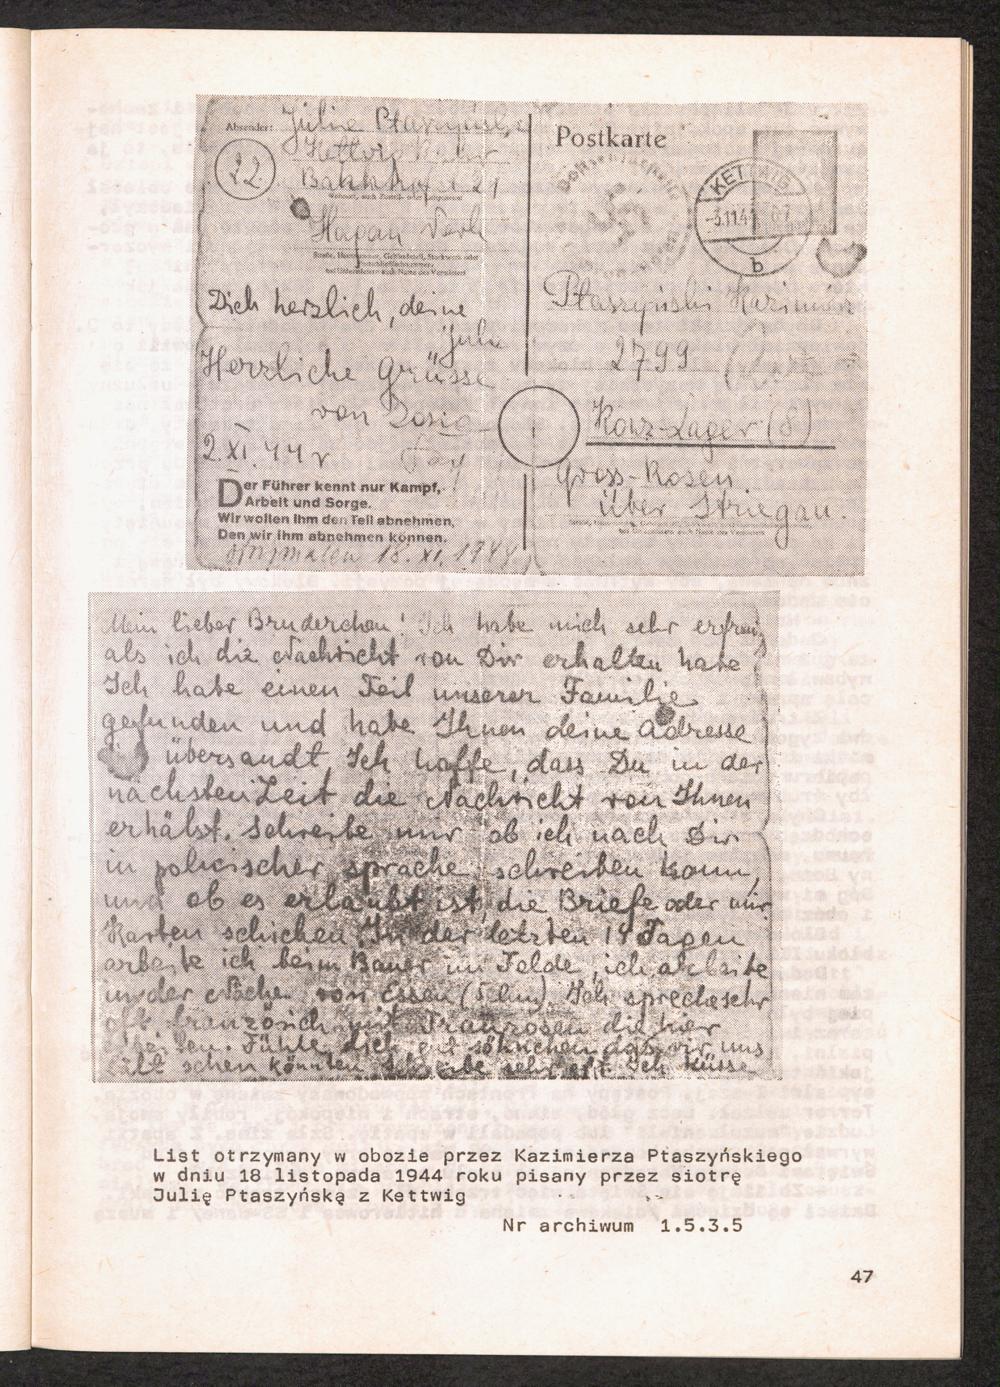 Absender: Julie Ptaszyńska
Kettwig Ruhr
22
Bahnhofstr 21
Wohnort, auch Zustell- oder Leitpostamt
Straße, Hausnummer, Gebäudeteil, Stockwerk oder
Postschließfachnummer;
bei Untermietern auch Name des Vermieters
Dich herzlich, deine
Jula
Herzliche Grüsse
von
2.XI.44 r
Der Führer kennt nur Kampf,
Arbeit und Sorge.
Wir wollen ihm den Teil abnehmen,
Den wir ihm abnehmen können.
18. XI. 1944
Postkarte
KETTWIG
-3.11.4
b
Ptaszyński Kazimierz
2799
Konz-Lager (8)
Gross-Rosen
über Striegau.
Mein lieber Bruderchen! Ich habe mich sehr
als ich die Nachricht von Dir erhalten habe.
Ich habe einen Teil unserer Familie
gefunden und habe Ihnen deine Adresse
übersandt. Ich hoffe, dass Du in der
nächsten Zeit die Nachricht von Ihnen
erhälst. Schreibe mir ob ich nach Dir
in polnischer sprache schreiben kann,
und ob es erlaubt ist, die Briefe oder nur
Karten schicken. In der letzten 14 Tagen
arbeite ich beim Bauer im Felde, ich arbeite
in der Nache von Essen. Ich spreche sehr
oft französich mit Franzosen die hier
Fühle dich gut dass wir uns
sehen könnten. Ich Küsse
List otrzymany w obozie przez Kazimierza Ptaszyńskiego
w dniu 18 listopada 1944 roku pisany przez siotrę
Julię Ptaszyńską z Kettwig
Nr archiwum 1.5.3.5
47